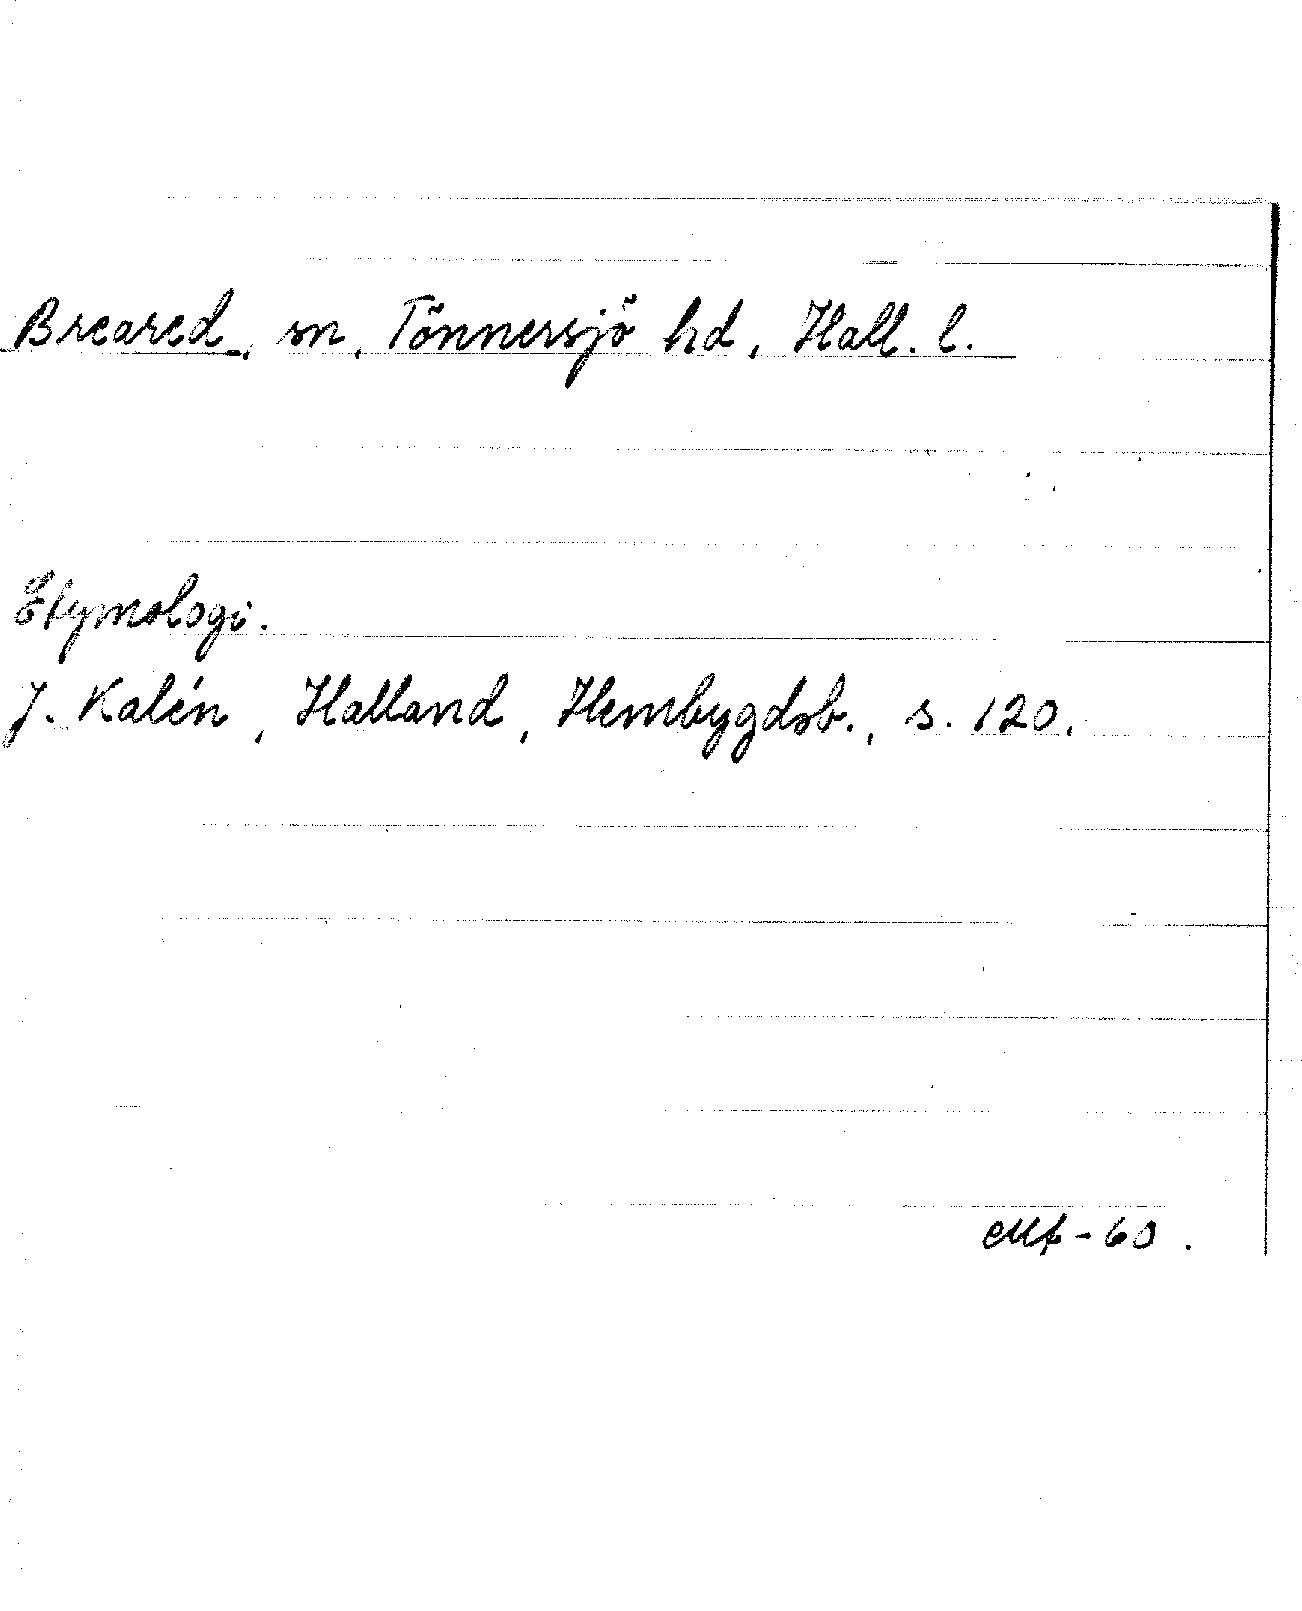 Breared, sn, Tönnersjö hd, Hall. l.
Etymologi.
J. Kalén, Halland, Hembygdsb., s. 120.
-60.